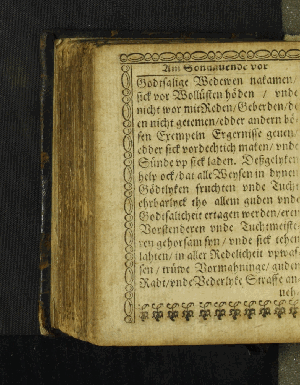 Am Sonnauende vor
Godtsalige Wedewen nakamen/
sick vor Wollüsten höden / vnde
nicht wor mit Reden/Geberden/de
en nicht getemen/edder andern bö-
sen Exempeln Ergernisse geuen
edder sick vordechtich maken/ vnde
Sünde vp sick laden. Desgelyken
help ock/dat alle Weysen in dynen
Gödtlyken fruchten vnde Tucht
ehrbarlyck tho allem guden vnde
Godtsalicheit ertagen werden/eren
Vorstenderen vnde Tuchtmeiste-
ren gehorsam syn/ vnde sick tehen
lahten/in aller Redelicheit vpwas-
sen/ trüwe Vormahninge/ guden
Radt/vnde Vederlyke Straffe an-
neh-